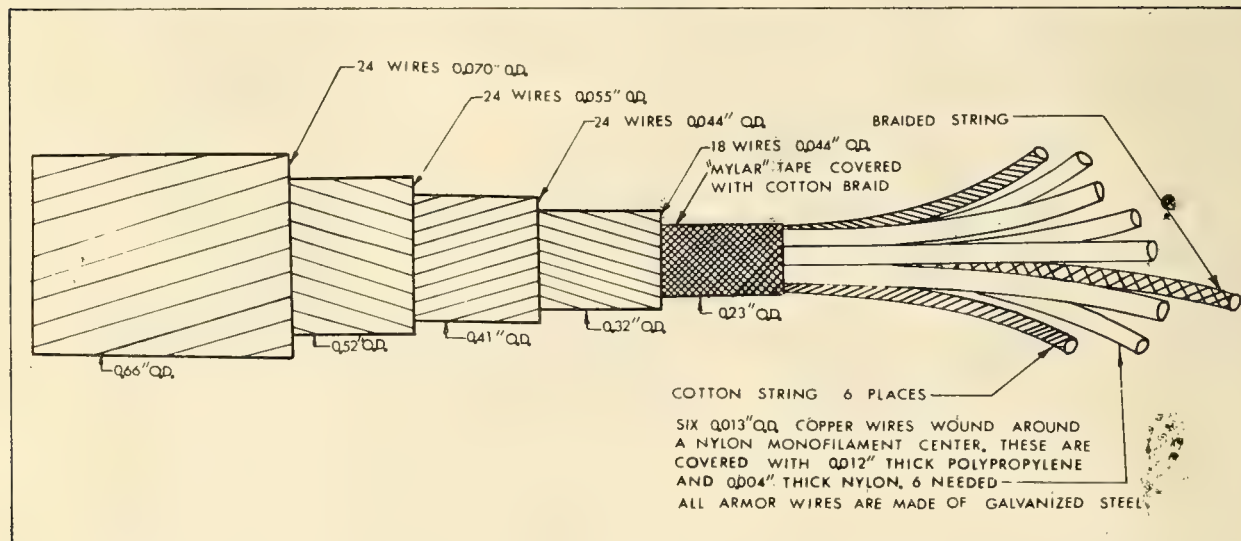 24 WIRES 0.070" O.D.
24 WIRES 0.055" O.D.
24 WIRES 0.044" O.D.
BRAIDED STRING
18 WIRES 0.044" O.D.
"MYLAR" TAPE COVERED
WITH COTTON BRAID
0.23" O.D.
0.32" O.D.
0.41" O.D.
0.52" O.D.
0.66" O.D.
COTTON STRING 6 PLACES
SIX 0.013" O.D. COPPER WIRES WOUND AROUND
A NYLON MONOFILAMENT CENTER. THESE ARE
COVERED WITH 0.012" THICK POLYPROPYLENE
AND 0.004" THICK NYLON. 6 NEEDED
ALL ARMOR WIRES ARE MADE OF GALVANIZED STEEL